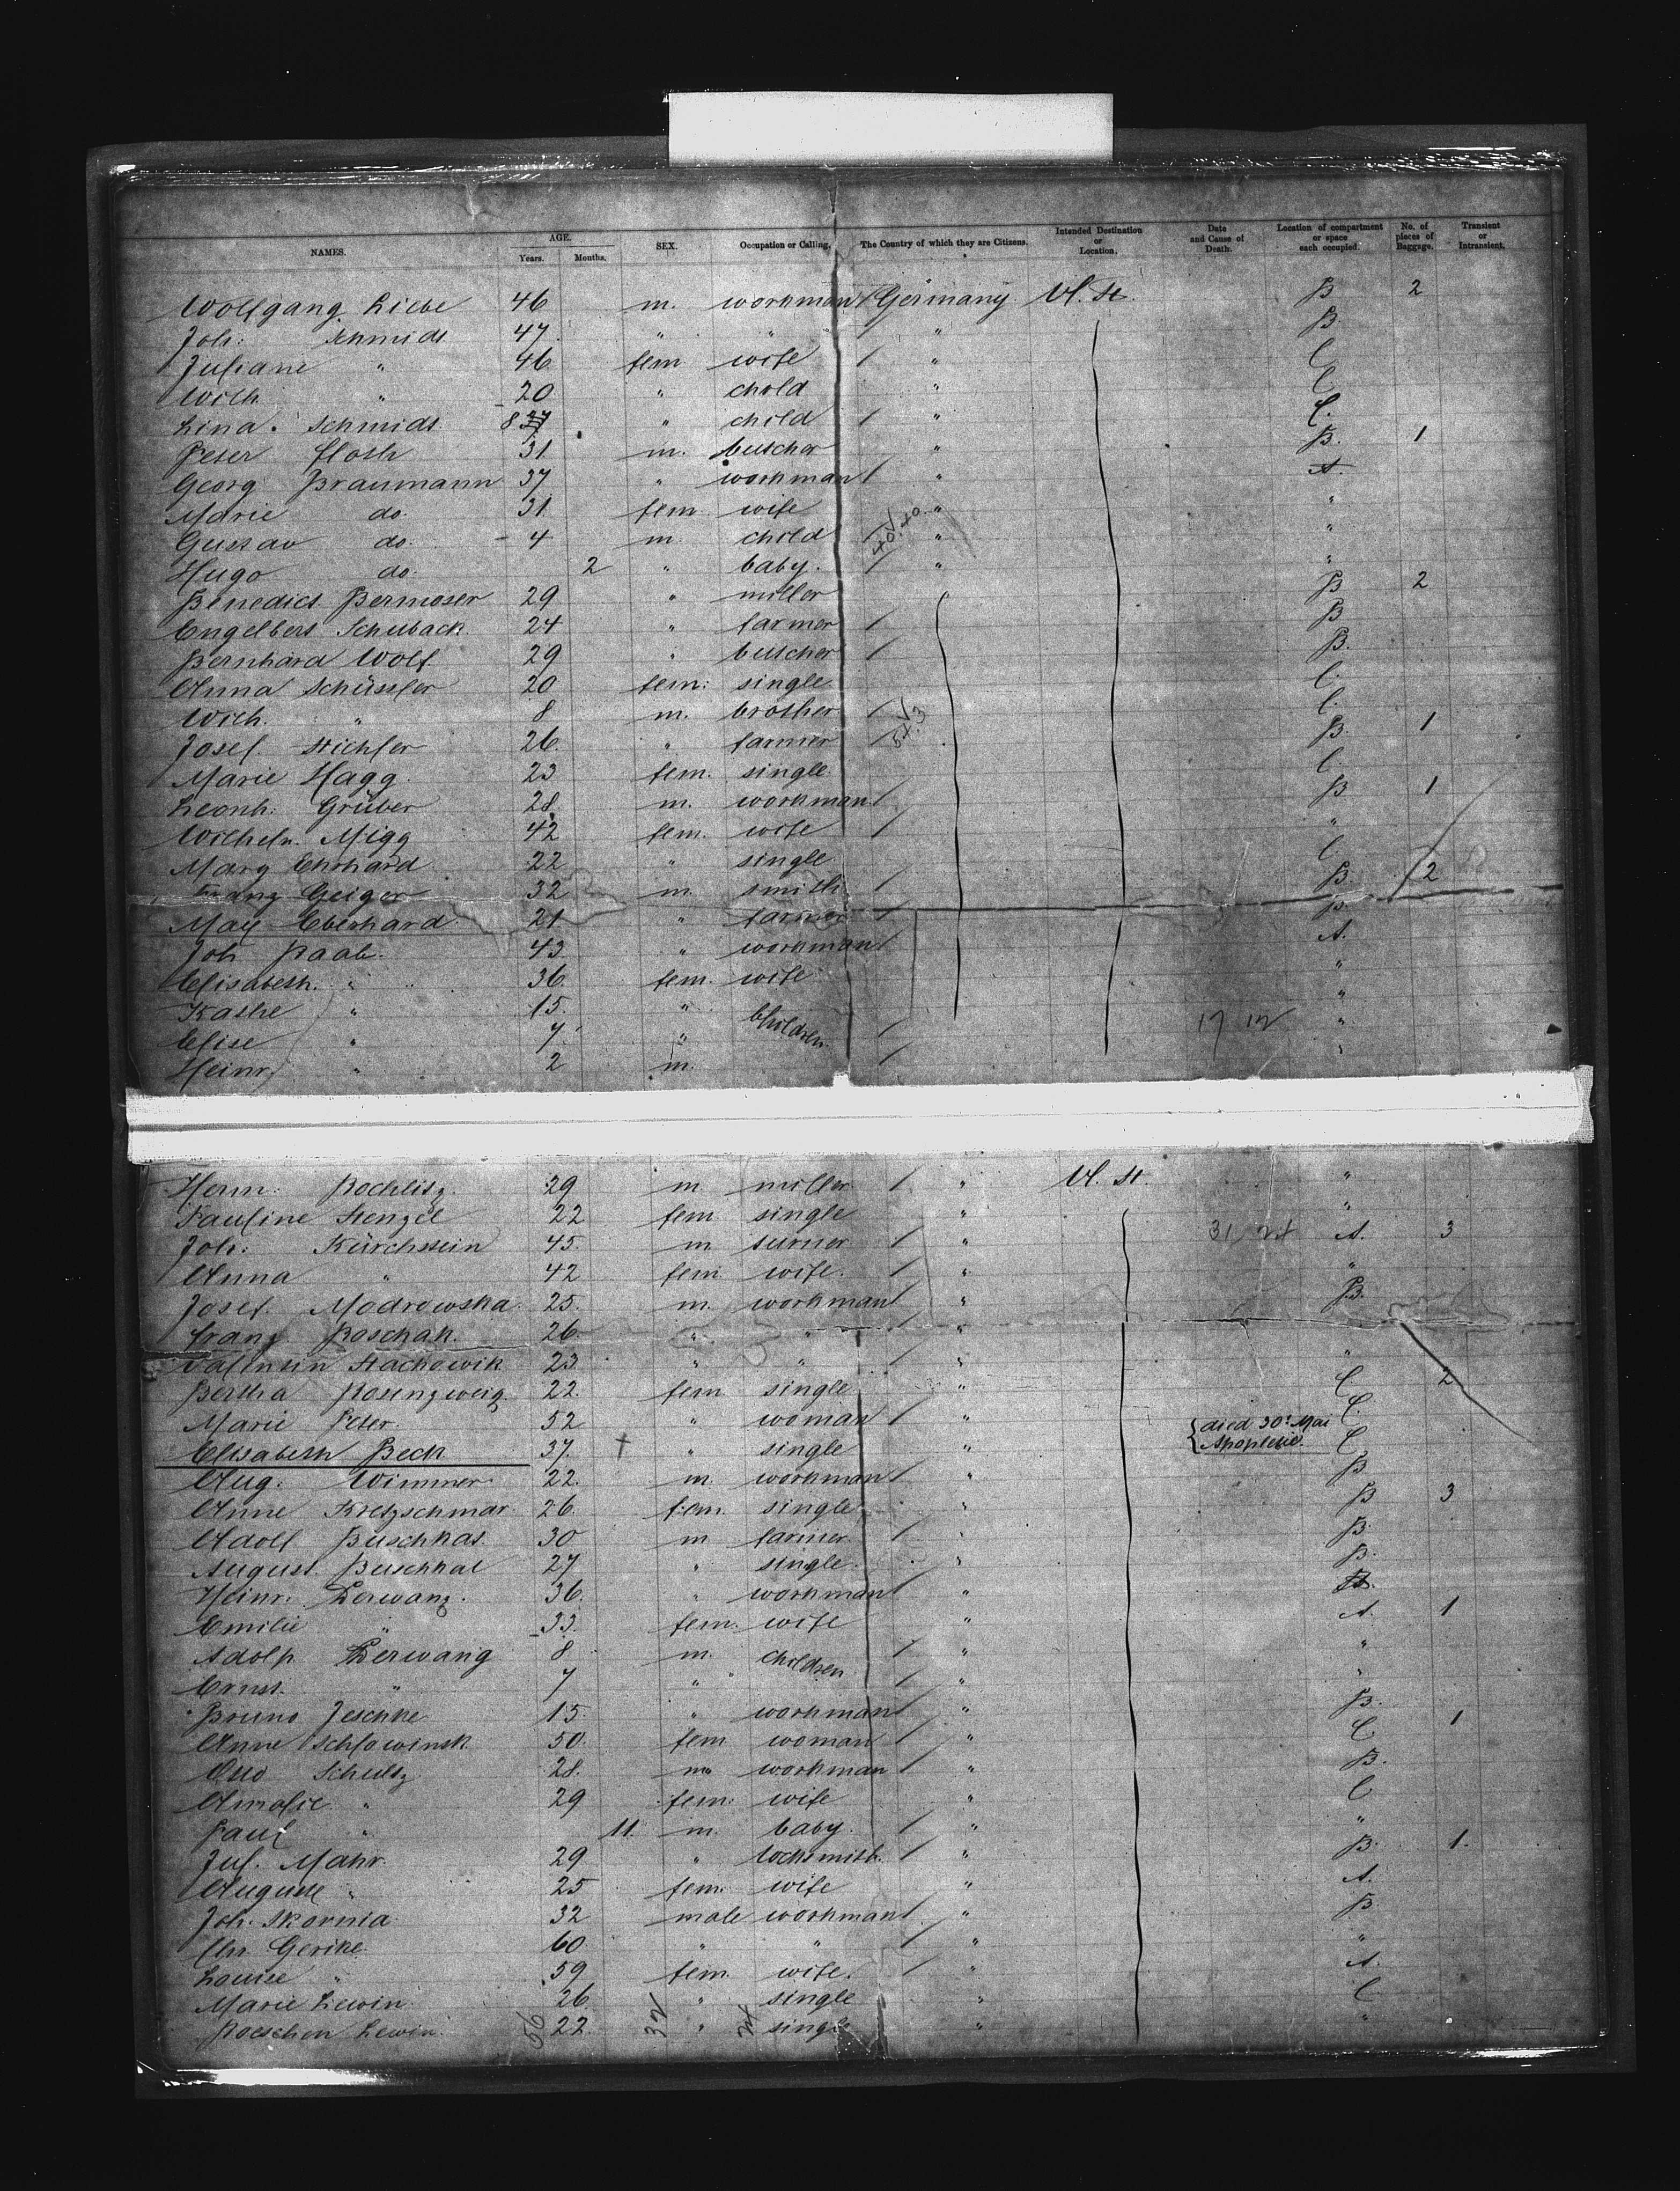 NAMES. AGE. Years. Months. SEX. Occupation or Calling. The Country of which they are Citizens. Intended Destination or Location. Date and Cause of Death. Location of compartment or space each occupied No. of pieces of Baggage. Transient or Intransient.
Wolfgang Liebe 46 m. workman / Germany U. St. B 2
Joh: Schmidt 47 " " " B.
Juliane " 46 fem wife / " C
Wilh. " 20 " chold " C
Lina. Schmidt 8 " child / " C.
Peter Floth 31 m. butscher " B. 1
Georg Braumann 37 " workman / " A.
Marie do. 31 fem wife "
Gustav do. 4 m. child / " "
Hugo do. 2 " baby. / " "
Benedict Bermoser 29 " miller B 2
Engelbert Schuback 24 " farmer / B
Bernhard Wolf 29 " butscher / B.
Anna Schüssler 20 fem: single C.
Wilh. " 8 m. brother / C.
Josef Stichler 26. " farmer / B. 1
Marie Hagg. 23 fem. single C.
Leonh: Gruber 28. m. workman / B 1
Wilhelm. Migg 42 fem. wife / "
Marg Ehrhard 22 " single C
Franz Geiger 32 m. smith / B. 2
Max Eberhard 21 " farmer / B.
Joh Raab. 43 " workman / A.
Elisabeth. " 36. fem. wife "
Kathe " 15. " Children "
Elise " 7. " / 17 "
Heinr. " 2 m. / "
Herm: Rochlitz. 29 m miller / " U. St. "
Pauline Stenzel 22 fem single " "
Joh: Kürchstein 45. m turner / " 31 A. 3
Anna " 42 fem wife. / " "
Josef. Modrowska. 25. m. workman / " B.
Franz Roschak. 26 " " / "
Valentin Stachowik 23 " " / " "
Bertha Rosenzweig. 22. fem single " C 2
Marie Peter. 52 " woman / " C.
Elisabeth Beck 37. † " single " died 30t Mai Apoplexie. C
Aug: Wimmer 22. m. workman / " B
Anne Kretzschmar. 26. fem. single " B 3
Adolf Buschkat. 30 m farmer / " B.
August. Buschkat 27 " single " B.
Heinr. Derwang. 36. " workman / "
Emilie " 33. fem. wife " A. 1
Adolph Derwang 8 m. children / " "
Ernst. " 7 " " / " "
Bruno Jeschke 15 " workman / " B.
Anne Schlowinsk. 50. fem woman / " C 1
Otto Schultz 28. m. workman / " B.
Amalie " 29 fem: wife " C
Paul " 11. m. baby. / " "
Jul. Mahr. 29 " locksmith. / " B. 1.
Auguste " 25 fem. wife " A.
Joh. Skornia. 32 male workman / " B
Chr Gerike 60 " " / " "
Louise " 59 fem. wife. / " A.
Marie Lewin 26 " single " C
Roeschen Lewin. 22. " single " "
56